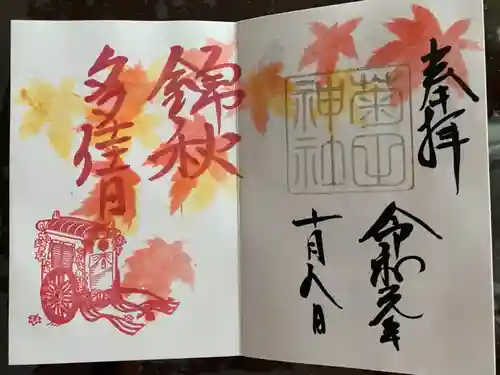 奉拝
菊田
神社
令和元年
十月八日
錦秋
多佳月